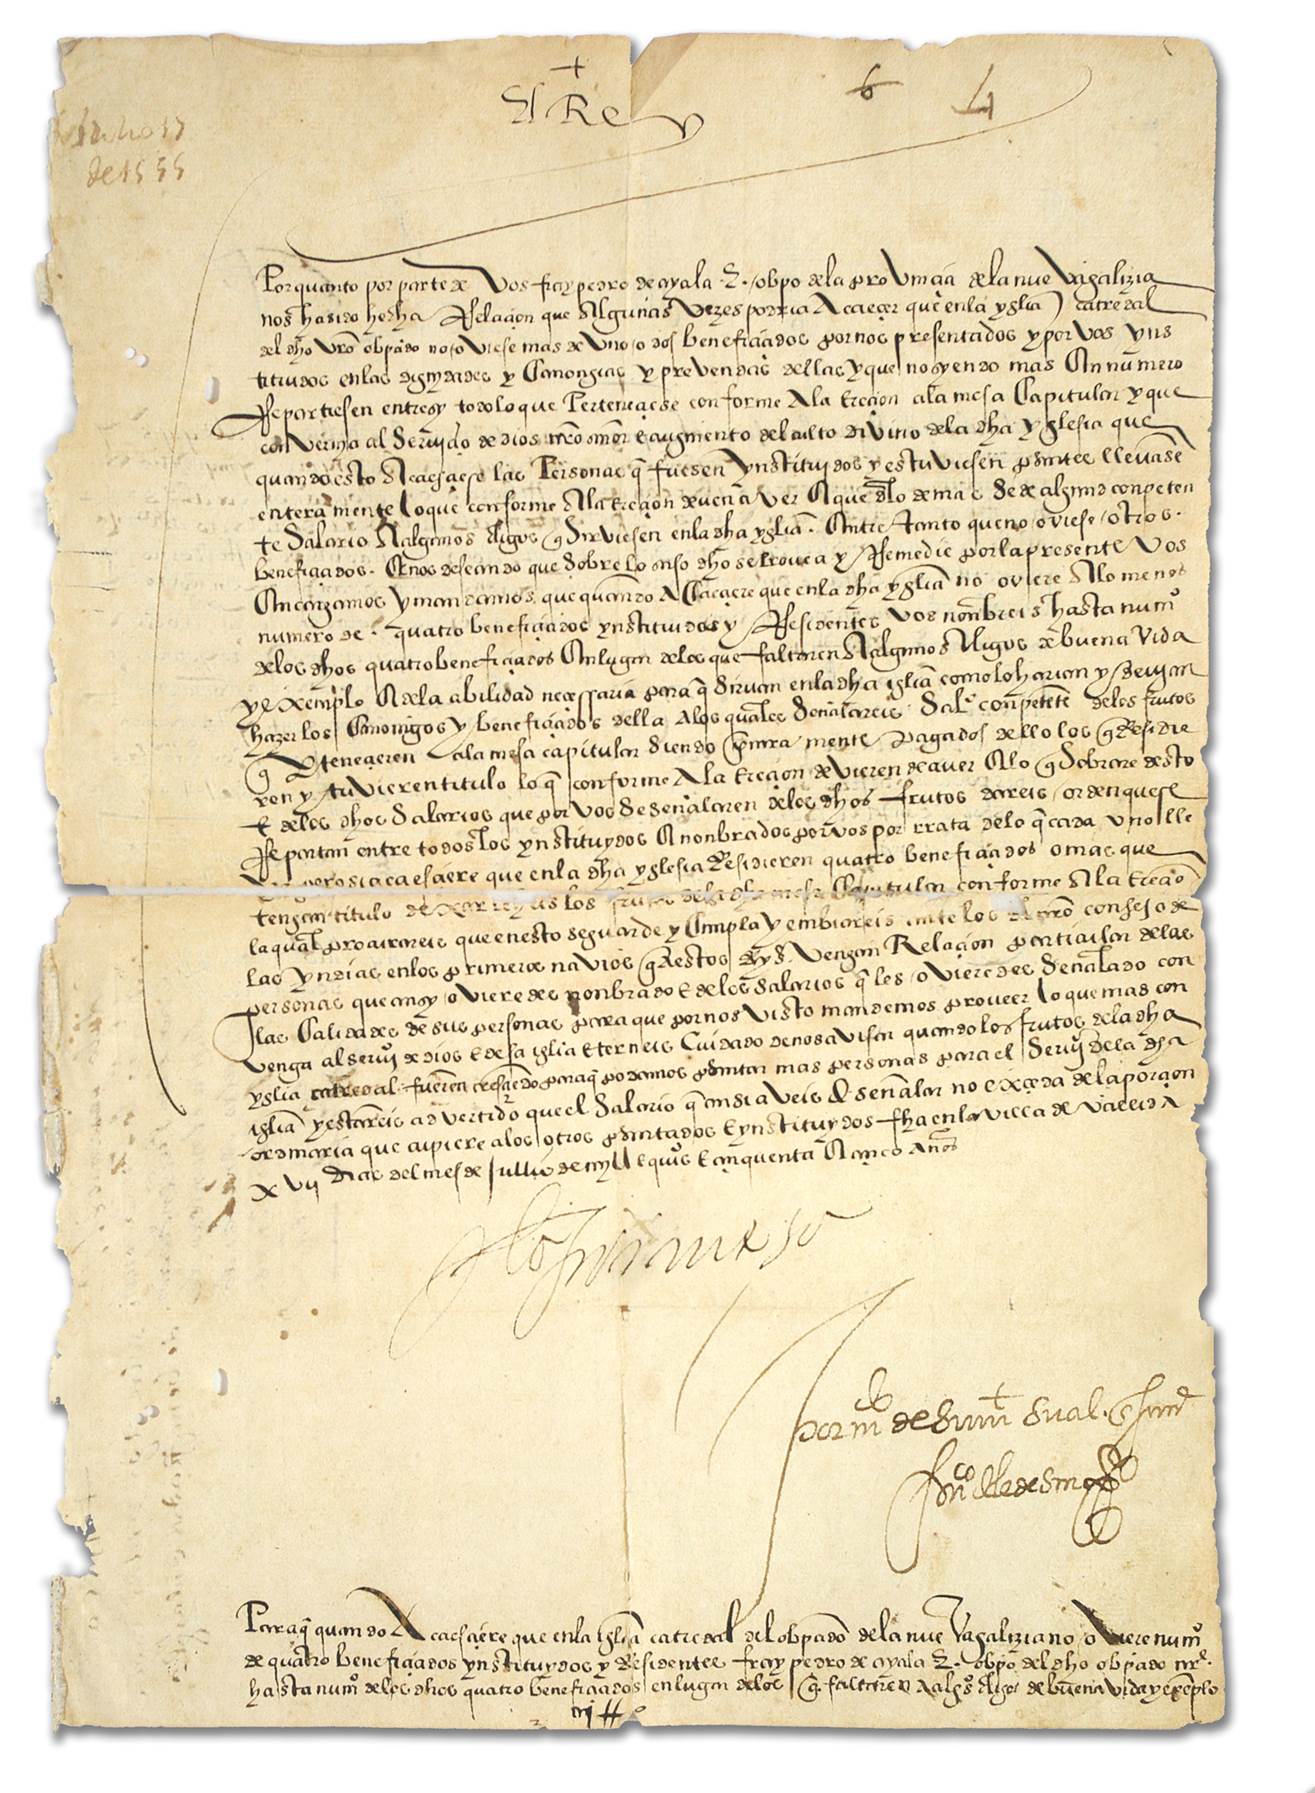 +
El Rey
6 4
Julio 17
de 1555
Por quanto por parte de Vos fray pedro de ayala obpo de la provinçia de la nueva galizia
nos ha sido hecha Relaçion que algunas vezes podria acaeçer que en la yglia catredal
del dho vro obpado no oviese mas de uno o dos benefiçiados por nos presentados y por vos yns
tituidos en las dignydades y canongias y prevendas dellas y que no syendo mas en numero
Repartiesen entre sy todo lo que perteneçiese conforme a la Ereçion a la mesa capitular y que
convernia al serviçio de dios nro señor e augmento del culto divino de la dha yglesia que
quando esto acaesçiese las personas q fuesen ynstituydos y estuviesen presentes llevasen
enteramente lo que conforme a la Ereçion devian aver e que de lo demas se de algund conpeten
te salario a algunos cligos q sirviesen en la dha yglia entre tanto que no oviese otros
benefiçiados. E nos deseando que sobre lo suso dho se provea y Remedie por la presente vos
encargamos y mandamos que quando acaeçiere que en la dha yglia no oviere a lo menos
numero de quatro benefiçiados ynstituidos y Residentes vos nonbreis hasta numº
de los dhos quatro benefiçiados en lugar de los que faltaren a algunos cligos de buena vida
y exemplo e de la abilidad neçessaria para q sirvan en la dha iglia como lo harian y devian
hazer los canonigos y benefiçiados della a los quales señalareis salº conpetete de los frutos
q perteneçieren a la mesa capitular siendo primeramente pagados dello los q Residie
ren y tuvieren titulo lo q conforme a la Ereçion devieren de aver e lo q sobrare desto
e de los dhos salarios que por vos se señalaren de los dhos frutos dareis orden que se
Repartan entre todos los ynstituydos e nonbrados por vos por rrata de lo q cada uno lle
pero si acaesçiere que en la dha yglesia Residieren quatro benefiçiados o mas que
tengan titulo dexarreys los frutos de la dha mesa Capitular conforme a la Ereçio
la qual proveereis que en esto se guarde y cumpla y embiareis ante los del nro consejo de
las yndias en los primeros navios q destos Reys. vengan Relaçion particular de las
personas que ansy ovieredes nonbrado e de los salarios q les ovieredes señalado con
las calidades de sus personas para que por nos visto mandemos proveer lo que mas con
venga al serviº de dios e desa iglia e terneis cuidado de nos avisar quando los frutos de la dha
yglia catredal fueren cresçiendo para q podamos presentar mas personas para el serviº de la dha
iglia y estareis advertido que el salario q ansi aveis de señalar no exçeda de la porçion
ordinaria que cupiere a los otros presentados e ynstituydos fha en la villa de vallid a
xvij dias del mes de jullio de myll e quiºs e çinquenta e çinco años
Por mdº de su mt su al. en su nre
frcº de ledesma
Para q quando acaesçiere que en la iglia catredal del obpado de la nueva galizia no oviere numº
de quatro benefiçiados ynstituydos y Residentes fray pedro de ayala obpo del dho obpado nre
hasta numº de los dhos quatro benefiçiados en lugar de los q faltaren a algºs cligos de buena vida y exenplo